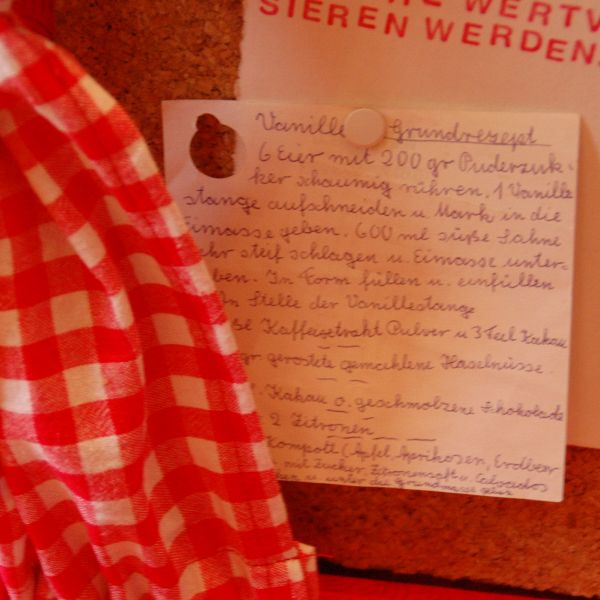 WERTV
SIEREN WERDEN.
Vanille Grundrezept
6 Eier mit 200 gr Puderzuk-
ker schaumig rühren. 1 Vanille
stange aufschneiden u. Mark in die
Eimasse geben. 600 ml süße Sahne
steif schlagen u. Eimasse unter-
ben. In Form füllen u. einfüllen
An Stelle der Vanillestange
Pulver u 3 Teel Kakau
gr geröstete gemahlene Haselnüsse
Kakau o. geschmolzene Schokolade
2 Zitronen
Kompott (Apfel, Aprikosen, Erdbeer
mit Zucker, Zitronensaft u. Calvados
u. unter die Grundmasse